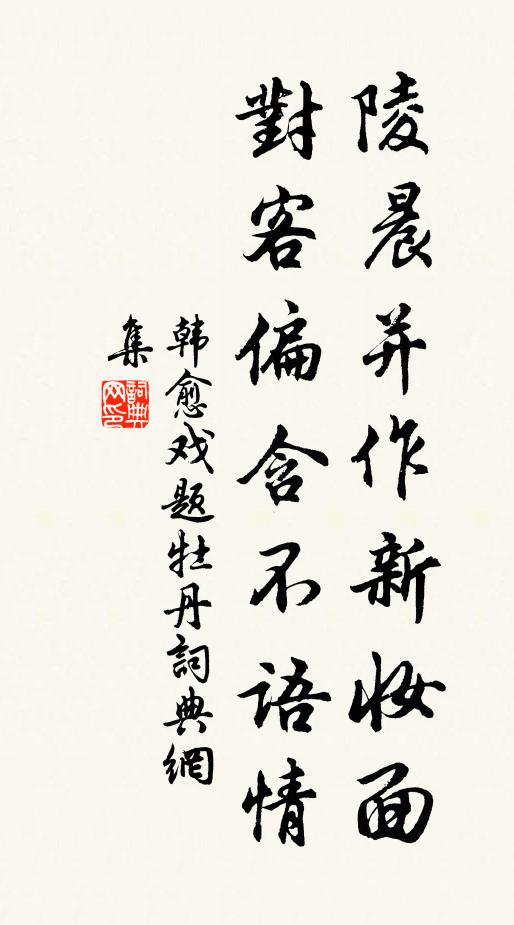 陵晨并作新妆面
對客偏含不語情
韩愈戏题牡丹詞典網
集
詞典网印